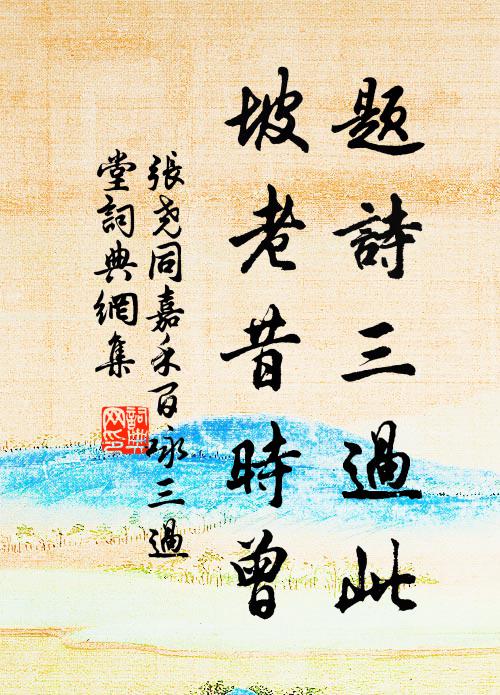 題詩三過此
坡老昔時曾
張堯同嘉禾百咏三過
堂詞典網集
詞典
网印